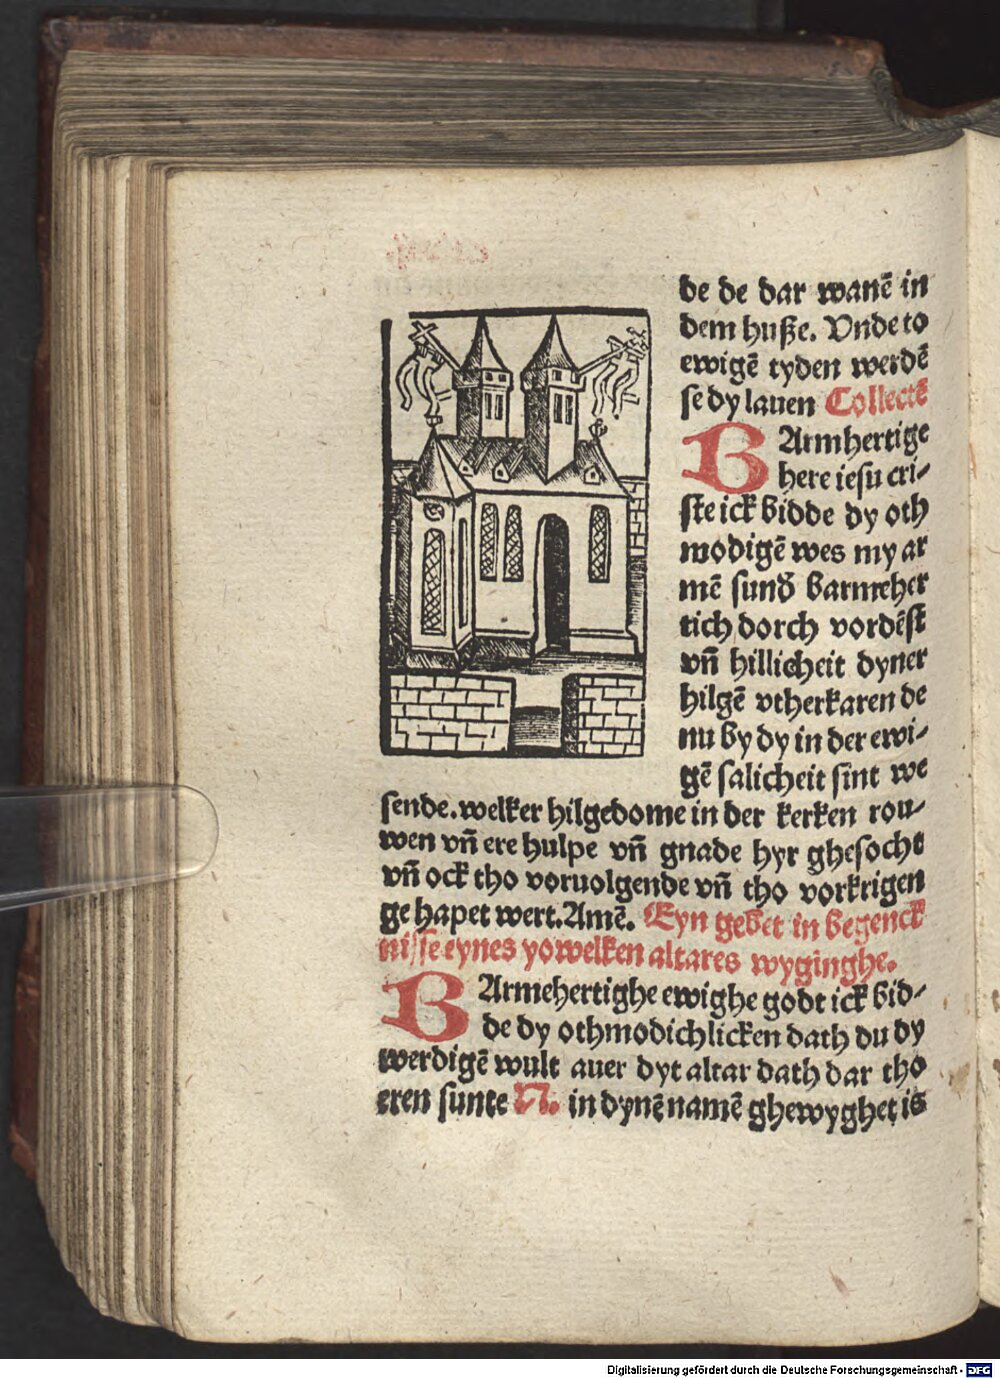 de de dar wanē in
dem huße. Vnde to
ewigē tyden werdē
se dy lauen Collectē
BArmhertige
here iesu cri-
ste ick bidde dy oth
modigē wes my ar
mē sund̄ barmeher
tich dorch vordēst
vn̄ hillicheit dyner
hilgē vtherkaren de
nu by dy in der ewi-
gē salicheit sint we
sende. welker hilgedome in der kerken rou-
wen vn̄ ere hulpe vn̄ gnade hyr ghesocht
vn̄ ock tho voruolgende vn̄ tho vorkrigen
ge hapet wert. Amē. Eyn gebet in begenck
nisse eynes yowelken altares wyginghe.
BArmehertighe ewighe godt ick bid-
de dy othmodichlicken dath du dy
werdigē wult auer dyt altar dath dar tho
eren sunte N. in dynē namē ghewyghet is
Digitalisierung gefördert durch die Deutsche Forschungsgemeinschaft - DFG